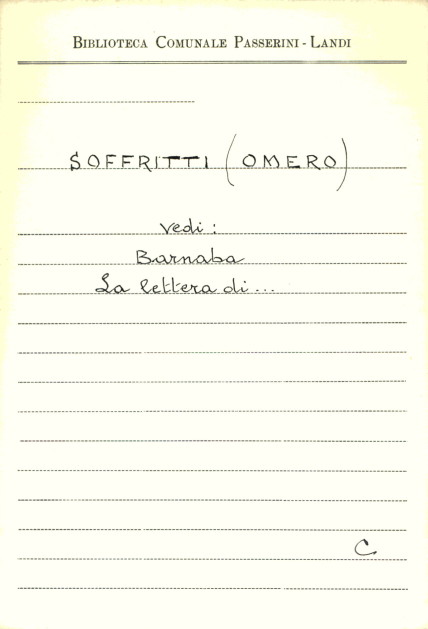 BIBLIOTECA COMUNALE PASSERINI - LANDI
SOFFRITTI (OMERO)
vedi :
Barnaba
La lettera di ...
C